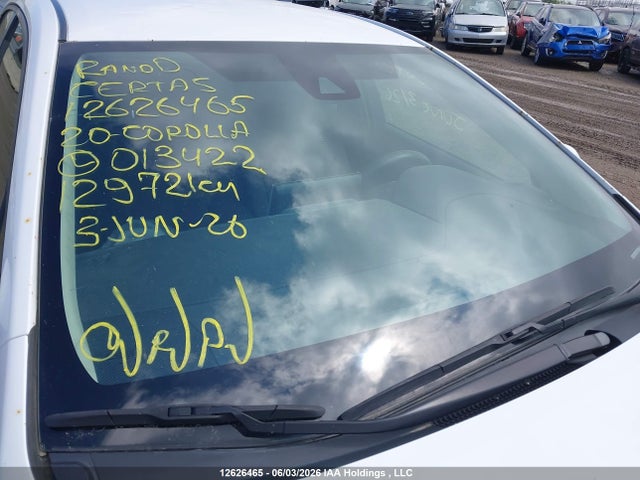 RANOD
CERTAS
12626465
20-COROLLA
@ 013422
129721km
3-JUN-26
12626465 - 06/03/2026 IAA Holdings , LLC